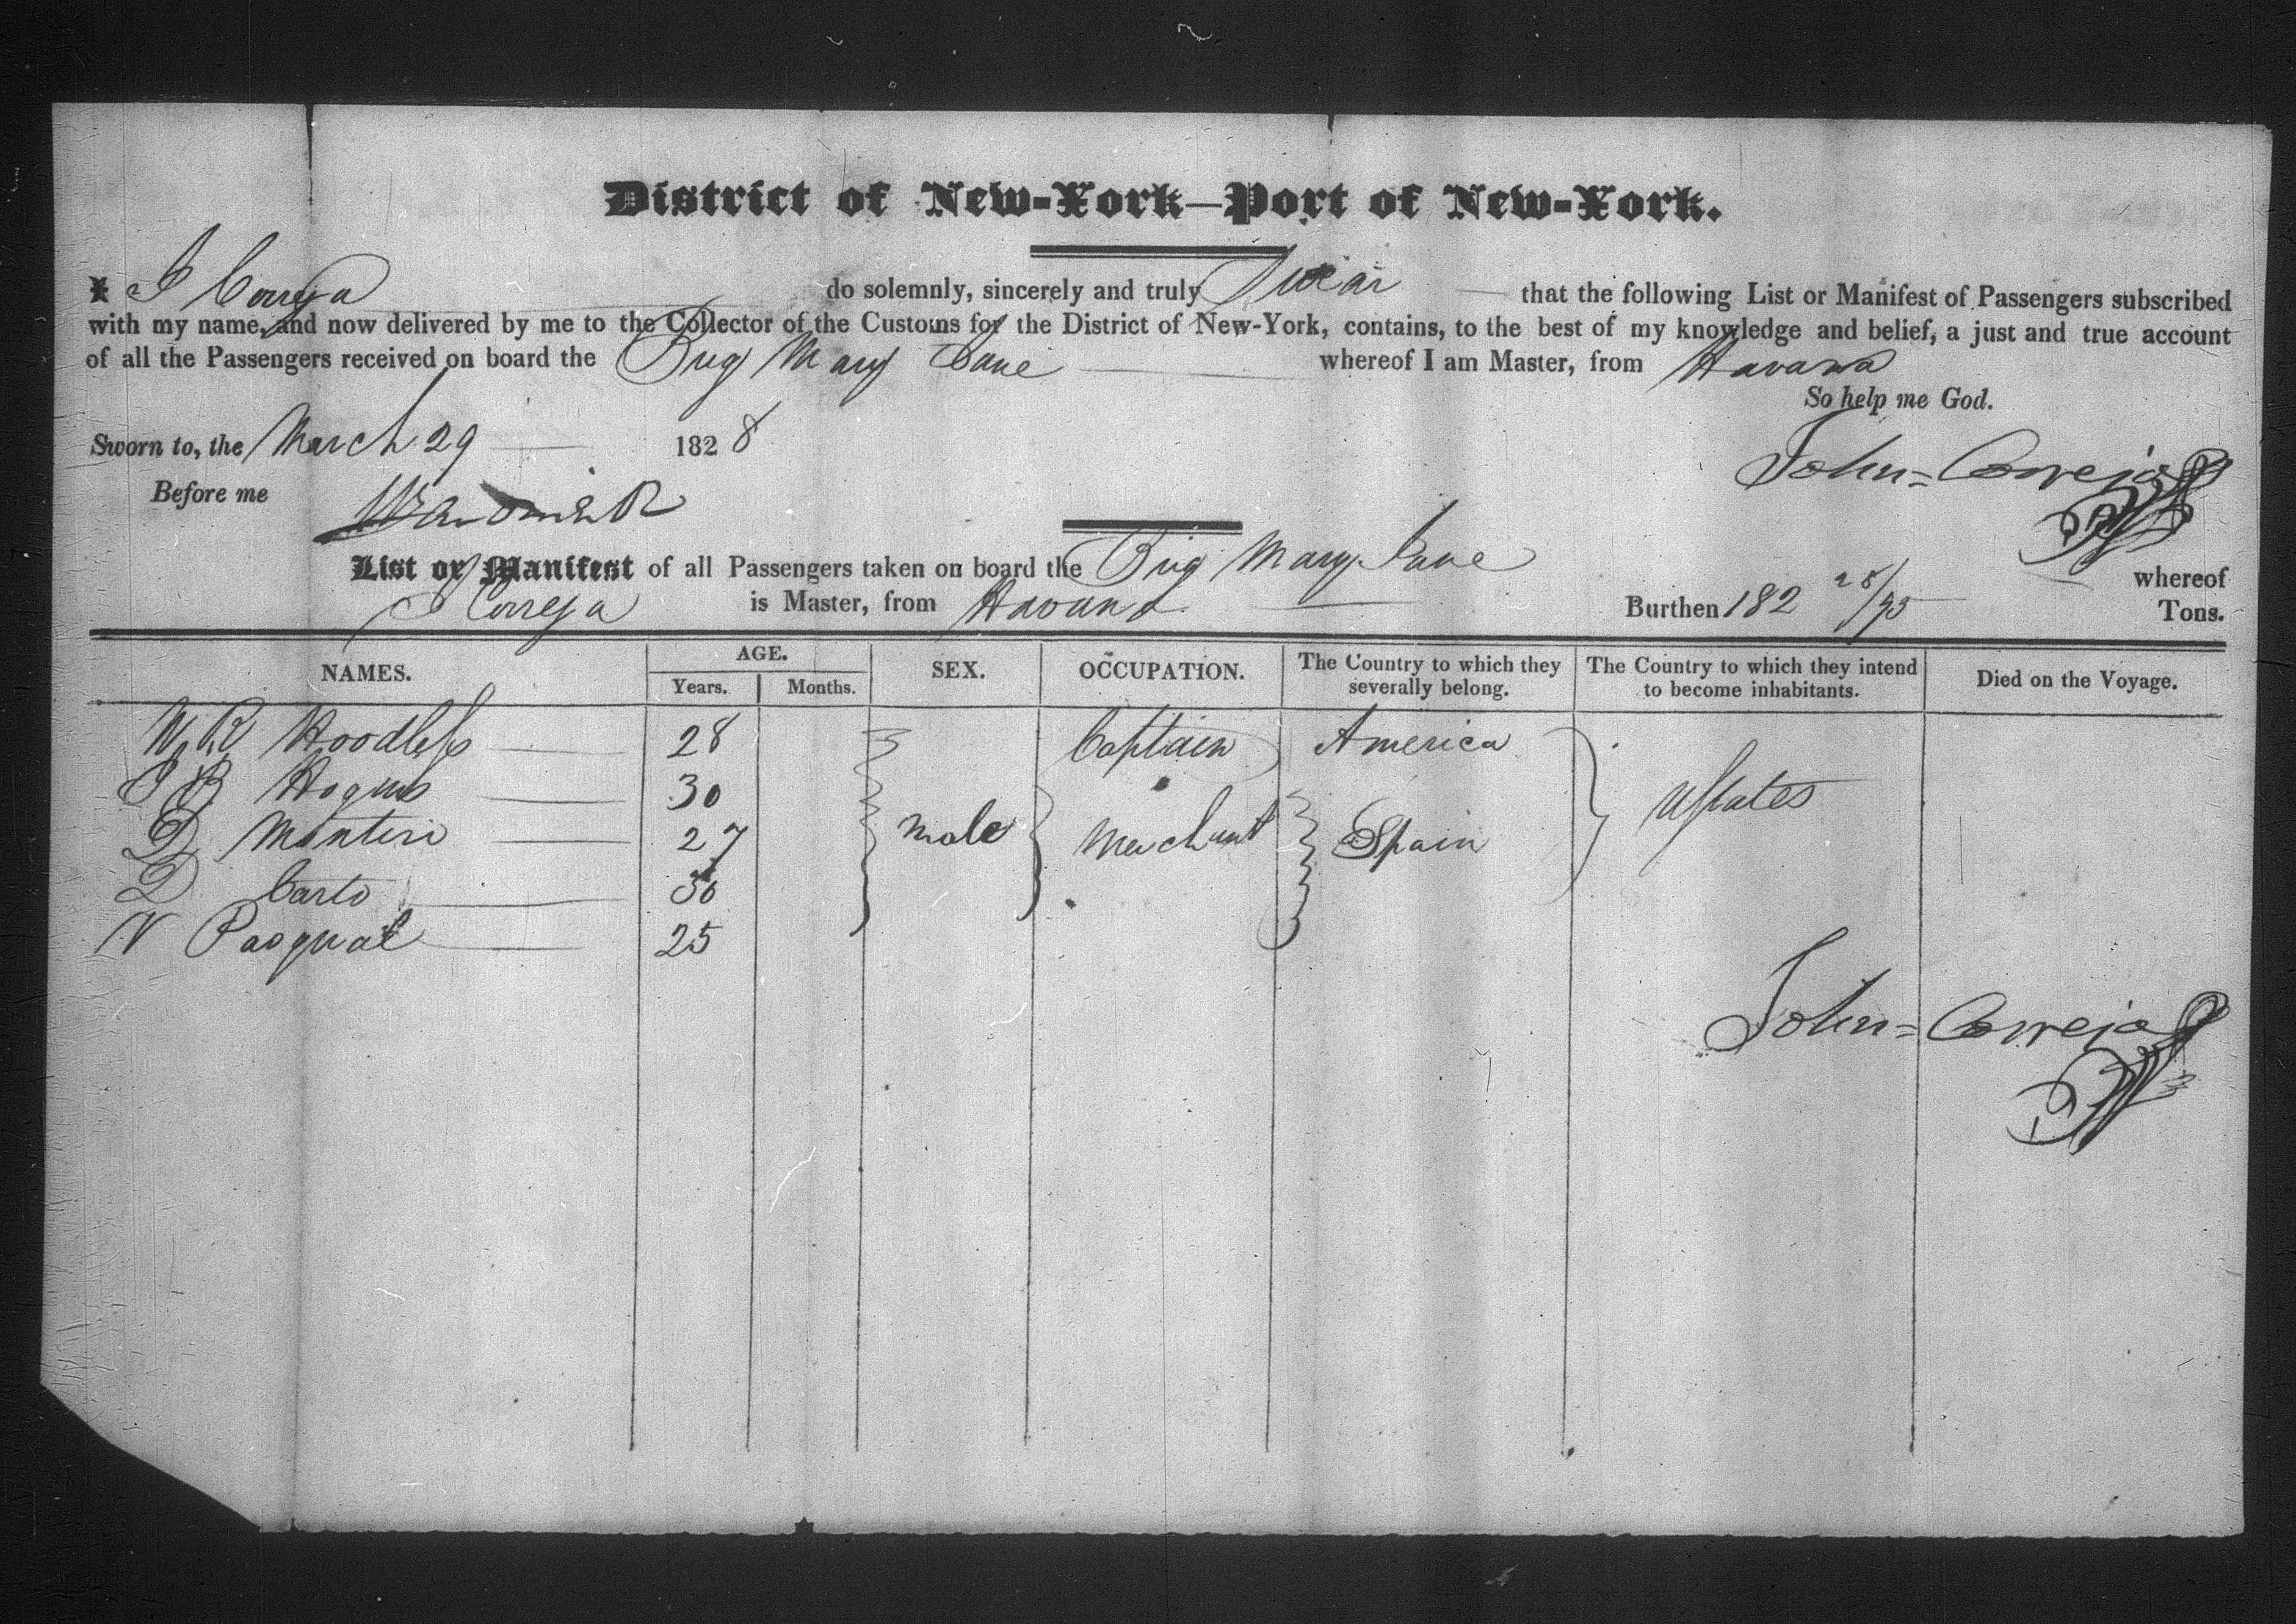 District of New-York—Port of New-York.
I J Correja do solemnly, sincerely and truly Swear that the following List or Manifest of Passengers subscribed
with my name, and now delivered by me to the Collector of the Customs for the District of New-York, contains, to the best of my knowledge and belief, a just and true account
of all the Passengers received on board the Brig Mary Jane whereof I am Master, from Havana
So help me God.
Sworn to, the March 29 1828
John=Correja
Before me
List or Manifest of all Passengers taken on board the Brig Mary Jane whereof
J Correja is Master, from Havana Burthen 182 28/95 Tons.
NAMES. AGE. SEX. OCCUPATION. The Country to which they severally belong. The Country to which they intend to become inhabitants. Died on the Voyage.
Years. Months.
W R Hoodless 28 Captain America
J B 30
D Monteri 27 male Merchant Spain UStates
D Carlo 30
N Pasqual 25
John=Correja